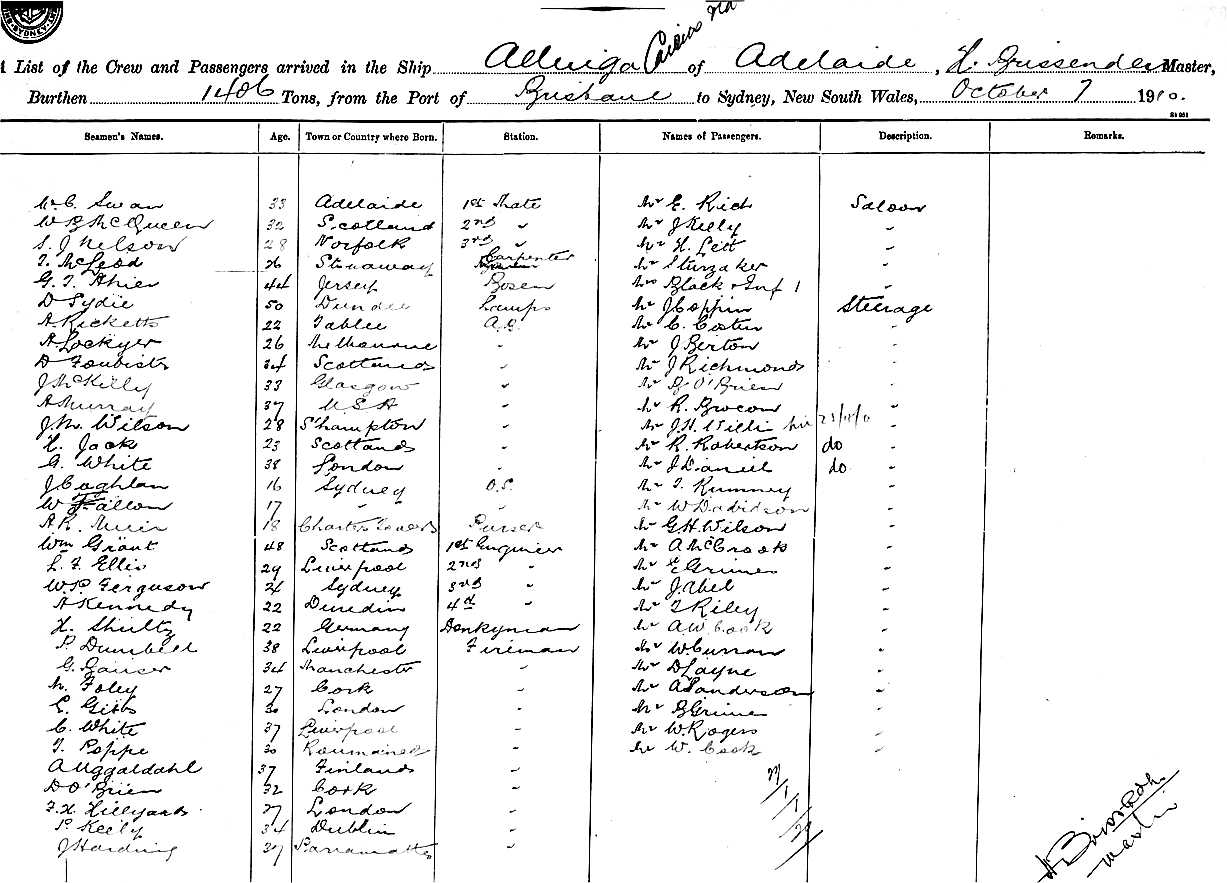 A List of the Crew and Passengers arrived in the Ship Allinga of Adelaide, H. Grissenden Master,
Burthen 1406 Tons, from the Port of Brisbane to Sydney, New South Wales, October 7 1910.
Seamen's Names. Age. Town or Country where Born. Station. Names of Passengers. Description. Remarks.
Swan 33 Adelaide 1st Mate Mr E. Rich Saloon
W B McQueen 32 Scotland 2nd " Mr J Kelly "
S. J Nelson 28 Norfolk 3rd " Mr H. Lett "
T. McLeod 26 Stornaway Carpenter Mr Sturzaker "
G. T. Ahier 44 Jersey Bosen Mrs Black & Inf 1 "
D Sydie 50 Dundee Lamps Mr J Coppin Steerage
A Ricketts 22 A.B. Mr C. Costin "
A Lockyer 26 Melbourne " Mr J Berton "
D Foubister 34 Scotland " Mr J Richmond "
J McKilly 33 Glasgow " Mr O'Brien "
A Murray 37 U.S.A " Mr R. "
J. M. Wilson 28 S'hampton " Mr J. H. Willi "
H. Jack 23 Scotland " Mr R. Robertson do "
G. White 38 London " Mr J Daniel do "
J Coghlan 16 Sydney O.S. Mr T. Rumney "
W Fallon 17 " " Mr W Davidson "
A. R. Muir 18 Charters Towers Purser Mr G H Wilson "
Wm Grant 48 Scotland 1st Engineer Mr A McCrook "
L. F. Ellis 29 Liverpool 2nd " Mr E Grimes "
W. P. Ferguson 24 Sydney 3rd " Mr J. Abel "
A Kennedy 22 Dunedin 4th " Mr T Riley "
H. Shultz 22 Germany Donkyman Mr A. W. Cook "
P. Dumbell 38 Liverpool Fireman Mr W. Curran "
G. 34 Manchester " Mr D Layne "
M. Foley 27 Cork " Mr A Sanderson "
E. Gibbs 30 London " Mr Grimes "
C. White 37 Liverpool " Mr W. Rogers "
T. Poppe 30 Roumained " Mr W. Cook "
A Uggaldahl 37 Finland "
D O'Brien 32 Cork "
F. H. Hillyard 27 London "
P. Keely 34 Dublin "
J Harding 37 Parramatta "
Master